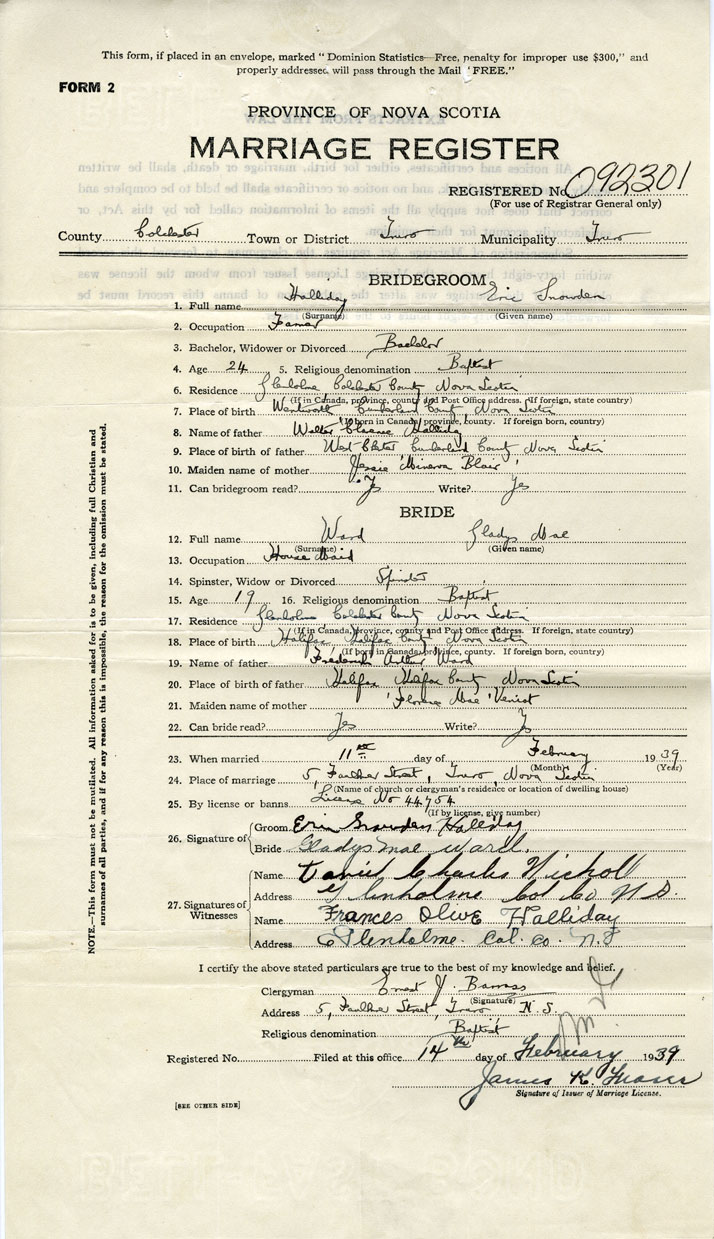 This form, if placed in an envelope, marked "Dominion Statistics—Free, penalty for improper use $300," and
properly addressed will pass through the Mail "FREE."
FORM 2
PROVINCE OF NOVA SCOTIA
MARRIAGE REGISTER
REGISTERED No. 092301
(For use of Registrar General only)
County Colchester Town or District Truro Municipality Truro
BRIDEGROOM
1. Full name Halliday Eric Snowden
(Surname) (Given name)
2. Occupation Farmer
3. Bachelor, Widower or Divorced Bachelor
4. Age 24 5. Religious denomination Baptist
6. Residence Glenholme Colchester County Nova Scotia
(If in Canada, province, county and Post Office address. If foreign, state country)
7. Place of birth Wentworth Cumberland County Nova Scotia
(If born in Canada, province, county. If foreign born, country)
8. Name of father Walter Halliday
9. Place of birth of father West Cumberland County Nova Scotia
10. Maiden name of mother Jessie Minerva Blair
11. Can bridegroom read? Yes Write? Yes
BRIDE
12. Full name Ward Gladys Mae
(Surname) (Given name)
13. Occupation House Maid
14. Spinster, Widow or Divorced Spinster
15. Age 19 16. Religious denomination Baptist
17. Residence Glenholme Colchester County Nova Scotia
(If in Canada, province, county and Post Office address. If foreign, state country)
18. Place of birth Halifax Halifax County Nova Scotia
(If born in Canada, province, county. If foreign born, country)
19. Name of father Frederick Arthur Ward
20. Place of birth of father Halifax Halifax County Nova Scotia
21. Maiden name of mother Florence Mae
22. Can bride read? Yes Write? Yes
23. When married 11th day of February 1939
(Month) (Year)
24. Place of marriage 5, Faulkner Street, Truro, Nova Scotia
(Name of church or clergyman's residence or location of dwelling house)
25. By license or banns License No 44754
(If by license, give number)
26. Signature of
Groom Eric Snowden Halliday
Bride Gladys Mae Ward.
27. Signatures of Witnesses
Name David Charles Nicholl
Address Glenholme Col Co N.S.
Name Frances Olive Halliday
Address Glenholme. Col. Co. N.S
I certify the above stated particulars are true to the best of my knowledge and belief.
Clergyman Ernest J. Barrass
(Signature)
Address 5, Faulkner Street, Truro N.S.
Religious denomination Baptist
Registered No. Filed at this office 14th day of February 1939
James K. Fraser
Signature of Issuer of Marriage License.
[SEE OTHER SIDE]
NOTE.—This form must not be mutilated. All information asked for is to be given, including full Christian and
surnames of all parties, and if for any reason this is impossible, the reason for the omission must be stated.